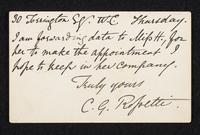 30 Torrington Sq. W.C. Thursday.
I am forwarding date to Miss H., for
her to make the appointment I
hope to keep in her company.
Truly yours
C. G. Rossetti